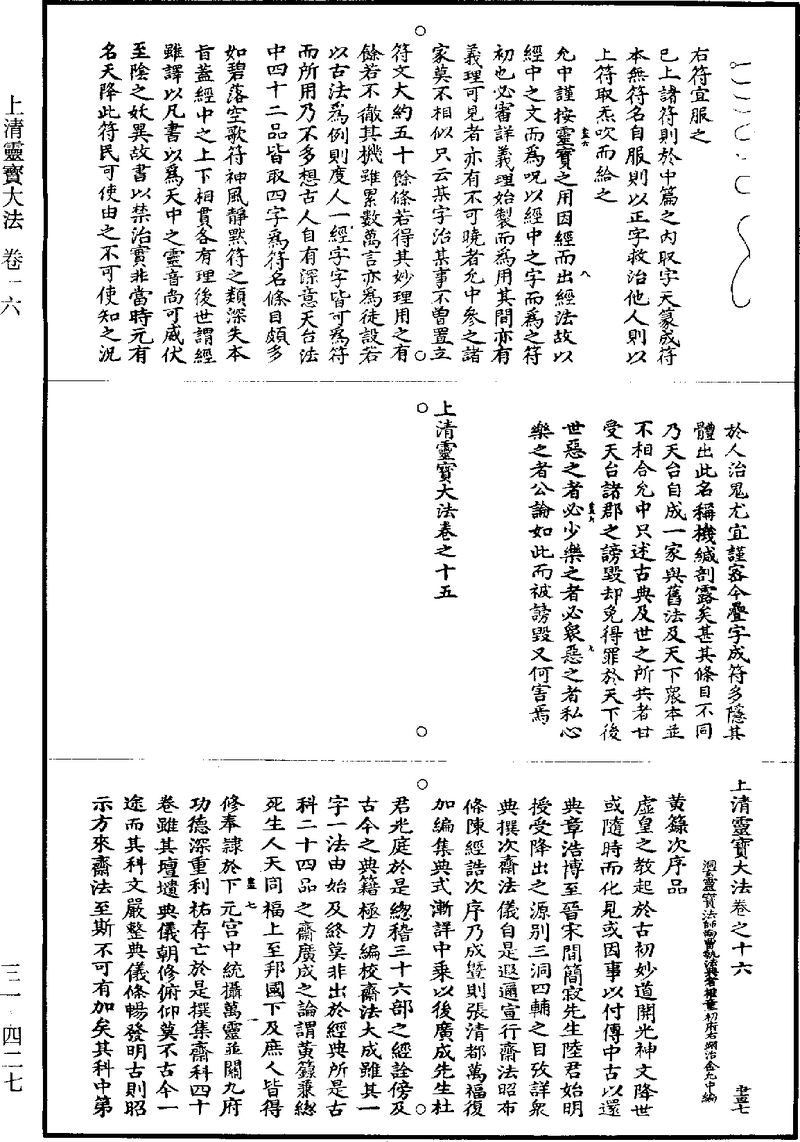 右符宜服之
已上諸符則於中篇之內取字天篆成符
本無符名自服則以正字救治他人則以
上符取炁吹而給之
允中謹按靈寶之用因經而出經法故以
經中之文而為呪以經中之字而為之符
初也必審詳義理始製而為用其間亦有
義理可見者亦有不可曉者允中參之諸
家莫不相似只云某字治某事不曾置立
符文大約五十餘條若得其妙理用之有
餘若不徹其機雖累數萬言亦為徒設若
以古法為例則度人一經字字皆可為符
而所用乃不多想古人自有深意天台法
中四十二品皆取四字為符名條目頗多
如碧落空歌符神風靜默符之類深失本
旨蓋經中之上下相貫各有理後世謂經
雖譯以凡書以為天中之靈音尚可威伏
至陰之妖異故書以禁治實非當時元有
名天降此符民可使由之不可使知之況
於人治鬼尤宜謹密今疊字成符多隱其
體出此名稱機緘剖露矣甚其條目不同
乃天台自成一家與舊法及天下眾本並
不相合允中只述古典及世之所共者甘
受天台諸郡之謗毀却免得罪於天下後
世惡之者必少樂之者必眾惡之者私心
樂之者公論如此而被謗毀又何害焉
上清靈寶大法卷之十五
上清靈寶大法卷之十六
洞玄靈寶法師南曹執法典者權童初府右翊治金允中編
黃籙次序品
虛皇之教起於古初妙道開光神文降世
或隨時而化見或因事以付傳中古以還
典章浩博至晉宋間簡寂先生陸君始明
授受降出之源別三洞四輔之目攷詳眾
典撰次齋法儀自是遐邇宣行齋法昭布
條陳經誥次序乃成暨則張清都萬福復
加編集典式漸詳中乘以後廣成先生杜
君光庭於是總稽三十六部之經詮傍及
古今之典籍極力編校齋法大成雖其一
字一法由始及終莫非出於經典所是古
科二十四品之齋廣成之論謂黃籙兼總
死生人天同福上至邦國下及庶人皆得
修奉隷於下元宮中統攝萬靈並關九府
功德深重利祐存亡於是撰集齋科四十
卷雖其壇墠典儀朝修俯仰莫不古今一
途而其科文嚴整典儀條暢發明古則昭
示方來齋法至斯不可有加矣其科中第
上清靈寶大法 卷一六
三一·四二七